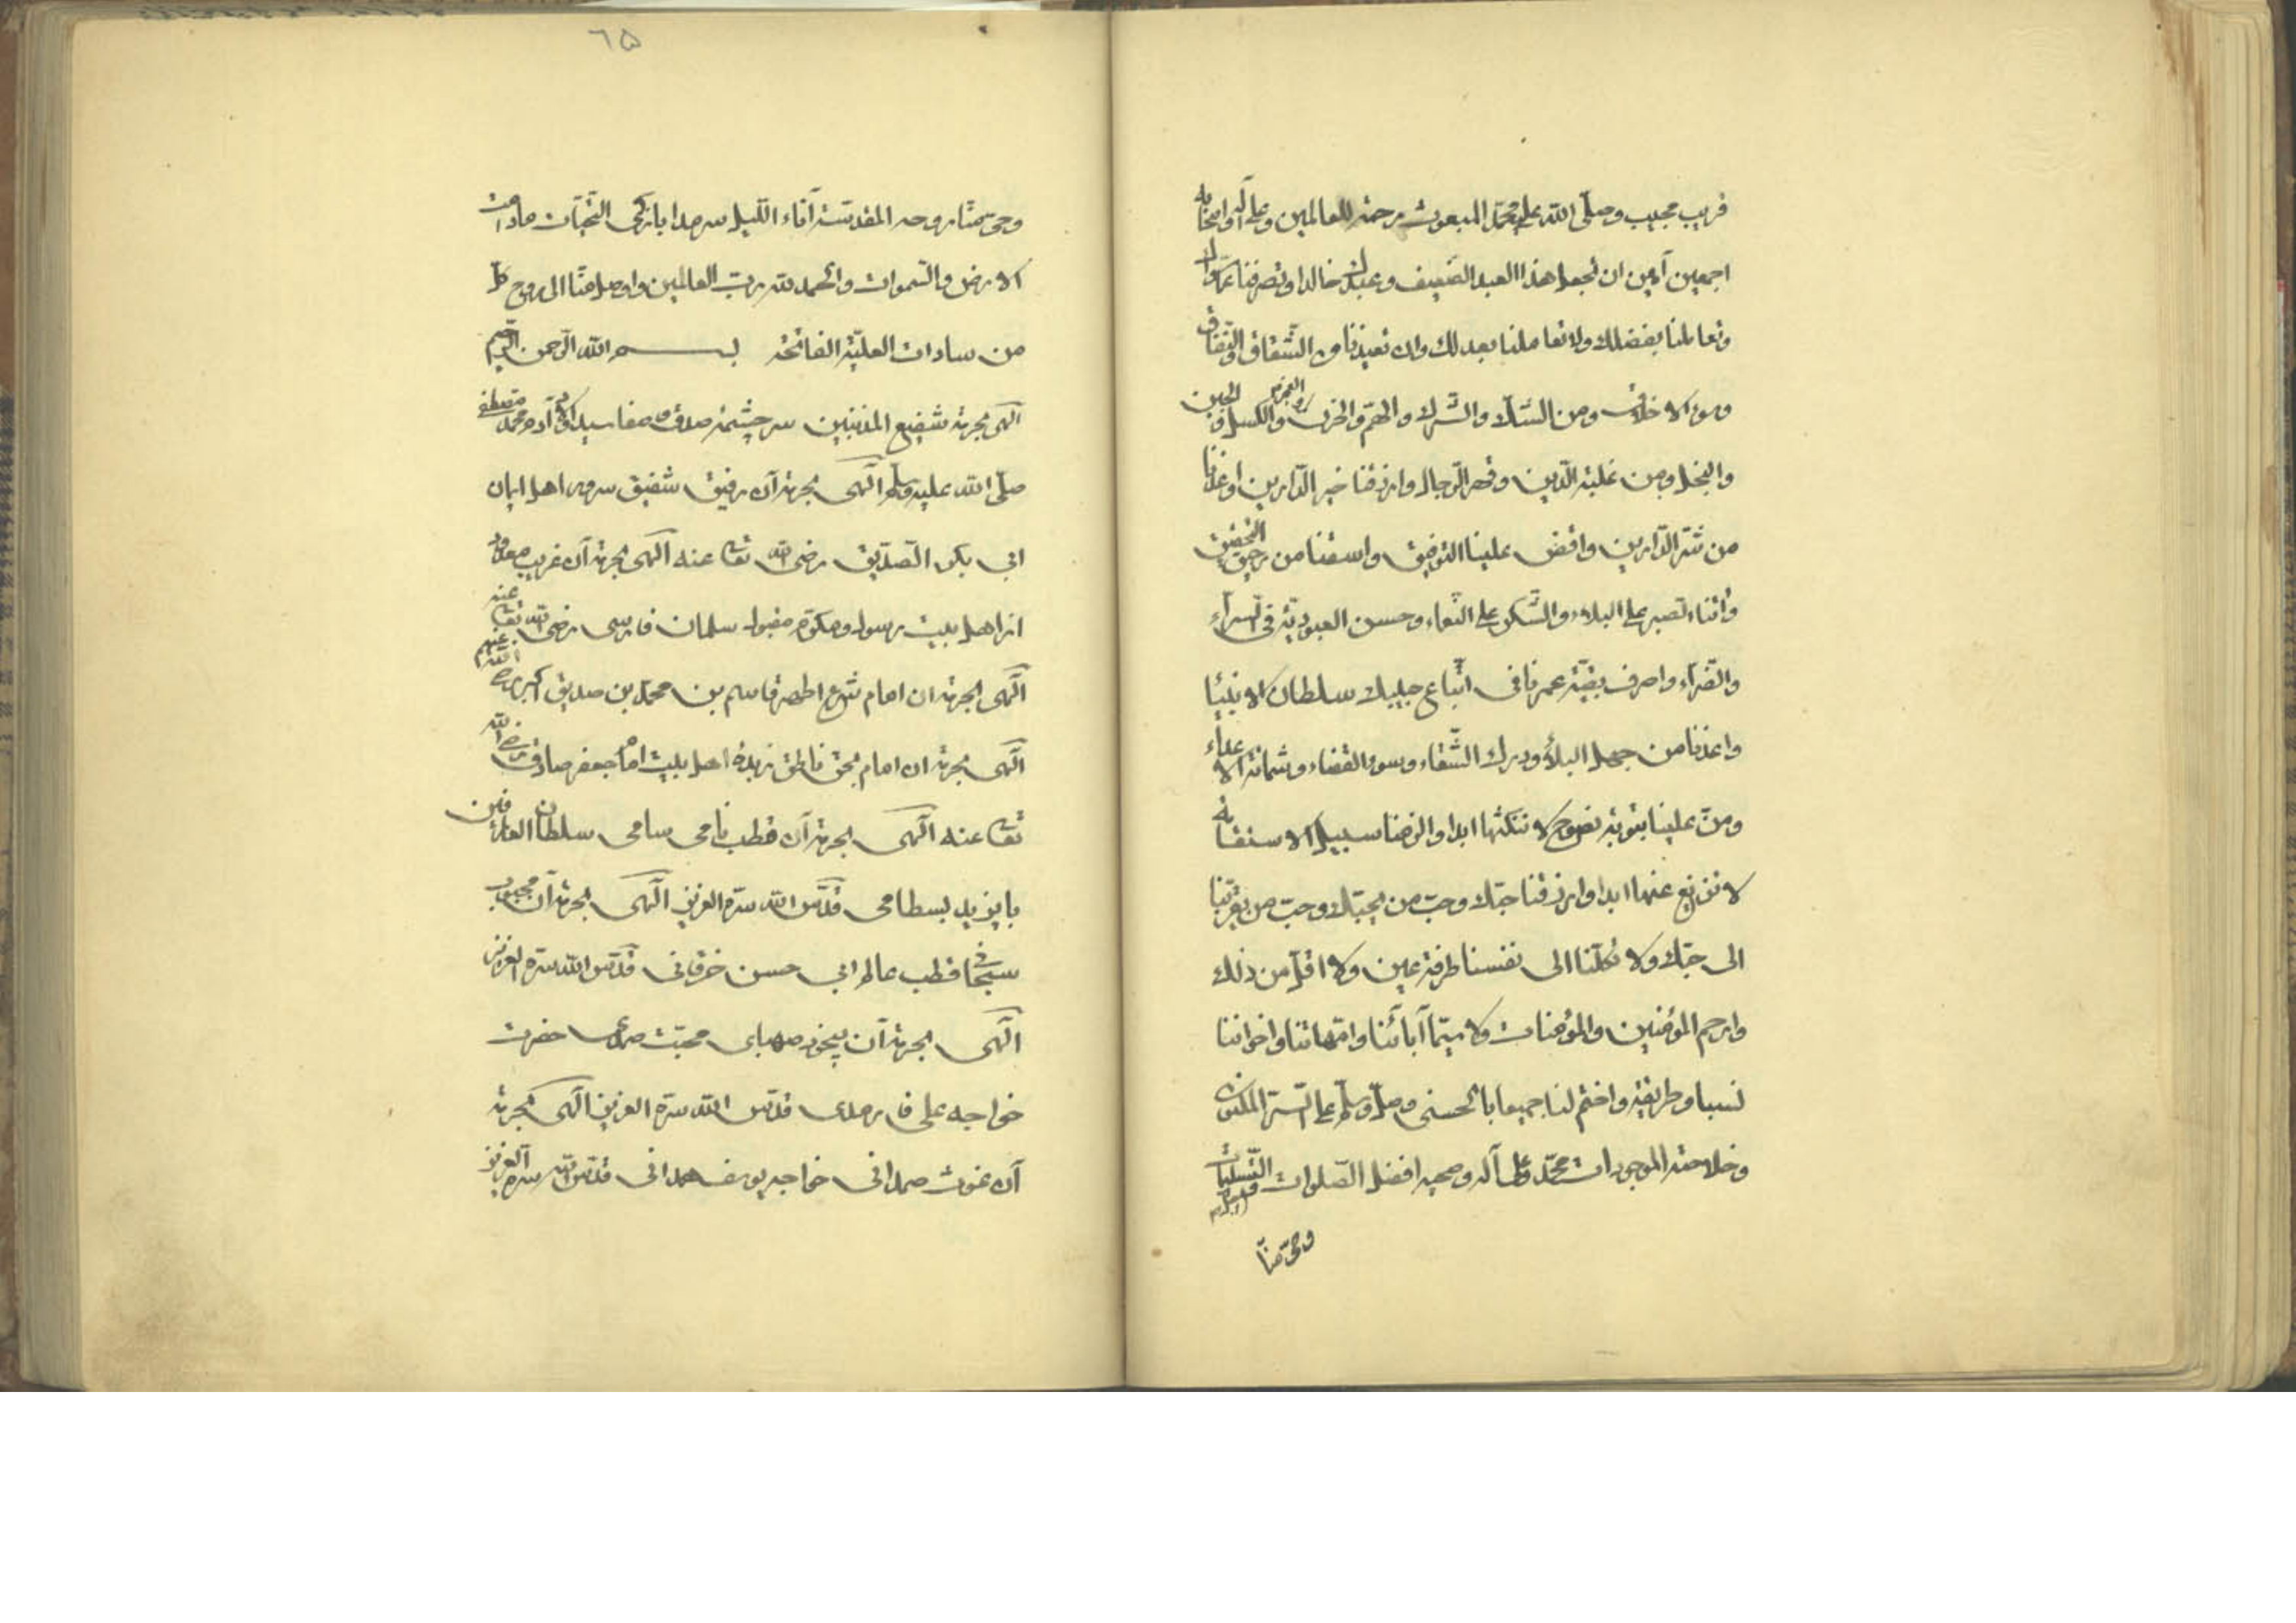 قریب مجیب وصلّی الله علی محمّد المبعوث رحمة للعالمین وعلی آله واصحابه
اجمعین آمین ان تجعل هذا العبد الضعیف وعبدك خالدا وتصرفنا عمّا سواك
وتعاملنا بفضلك ولا تعاملنا بعدلك وان تعیذنا من الشّقاق والنّفاق
وسوء الاخلاق ومن الشّك والشّرك والهمّ والحزن والعجز والکسل والجبن
والبخل ومن غلبة الدّین وقهر الرّجال وارزقنا خیر الدّارین واعذنا
من شرّ الدّارین وافض علینا التوفیق واسقنا من رحیق التحقیق
وآتنا الصبر علی البلاء والشّکر علی النّعماء وحسن العبودیّة فی السرّآء
والضرّآء واصرف بقیّة عمرنا فی اتّباع حبیبك سلطان الانبیٔا
واعذنا من جهد البلاء ودرك الشّقاء وسوء القضاء وشماتة الاعداء
ومنّ علینا بتوبة نصوح لا ننکثها ابدا والزمنا سبیل الاستقامة
لا نزیغ عنها ابدا وارزقنا حبّك وحبّ من یحبّك وحبّ من یقربنا
الی حبّك ولا تکلنا الی نفسنا طرفة عین ولا اقلّ من ذلك
وارحم المؤمنین والمؤمنات ولا سیّما آبائنا وامّهاتنا واخواننا
نسبا وطریقة واختم لنا جمیعا بالحسنی وصلّ وسلّم علی السرّ المکنون
وخلاصة الموجودات محمّد وعلی آله وصحبه افضل الصّلوات والتّسلیمات
وحیّ منّا
٦٥
وحیّ منّا روحه المقدسة آناء اللّیل سرمدا بازکی التحیّات مادامت
الارض والسّموات والحمد لله ربّ العالمین واوصل منّا الی روح کلّ
من سادات العلیّة الفاتحة بسم الله الرّحمن الرّحیم
الٓهی بحرمة شفیع المذنبین سر چشمهٔ صدق وصفا سید اولاد آدم محمّد مصطفی
صلّی الله علیه وسلّم الٓهی بحرمة آن رفیق شفیق سرور اهل ایمان
ابی بکر الصدّیق رضی الله تعا عنه الٓهی بحرمة آن غریب معدود
از اهل بیت رسول ومکرّم مقبول سلمان فارسی رضی الله تعا عنه
الٓهی بحرمة ان امام شرع اطهر قاسم بن محمّد بن صدیق اکبر رضی الله عنهم
الٓهی بحرمة ان امام بحق ناطق زبدهٔ اهل بیت امام جعفر صادق رضی الله
تعا عنه الٓهی بحرمة آن قطب نامی سامی سلطان العارفین
بایزید بسطامی قدّس الله سرّه العزیز الٓهی بحرمة آن محبوب
سبحانی قطب عالم ابی حسن خرقانی قدّس الله سرّه العزیز
الٓهی بحرمة آن بیخود صهبای محبّت صمدی حضرت
خواجه علی فارمدی قدّس الله سرّه العزیز الٓهی بحرمة
آن غوث صمدانی خواجه یوسف همدانی قدّس الله سره العزیز